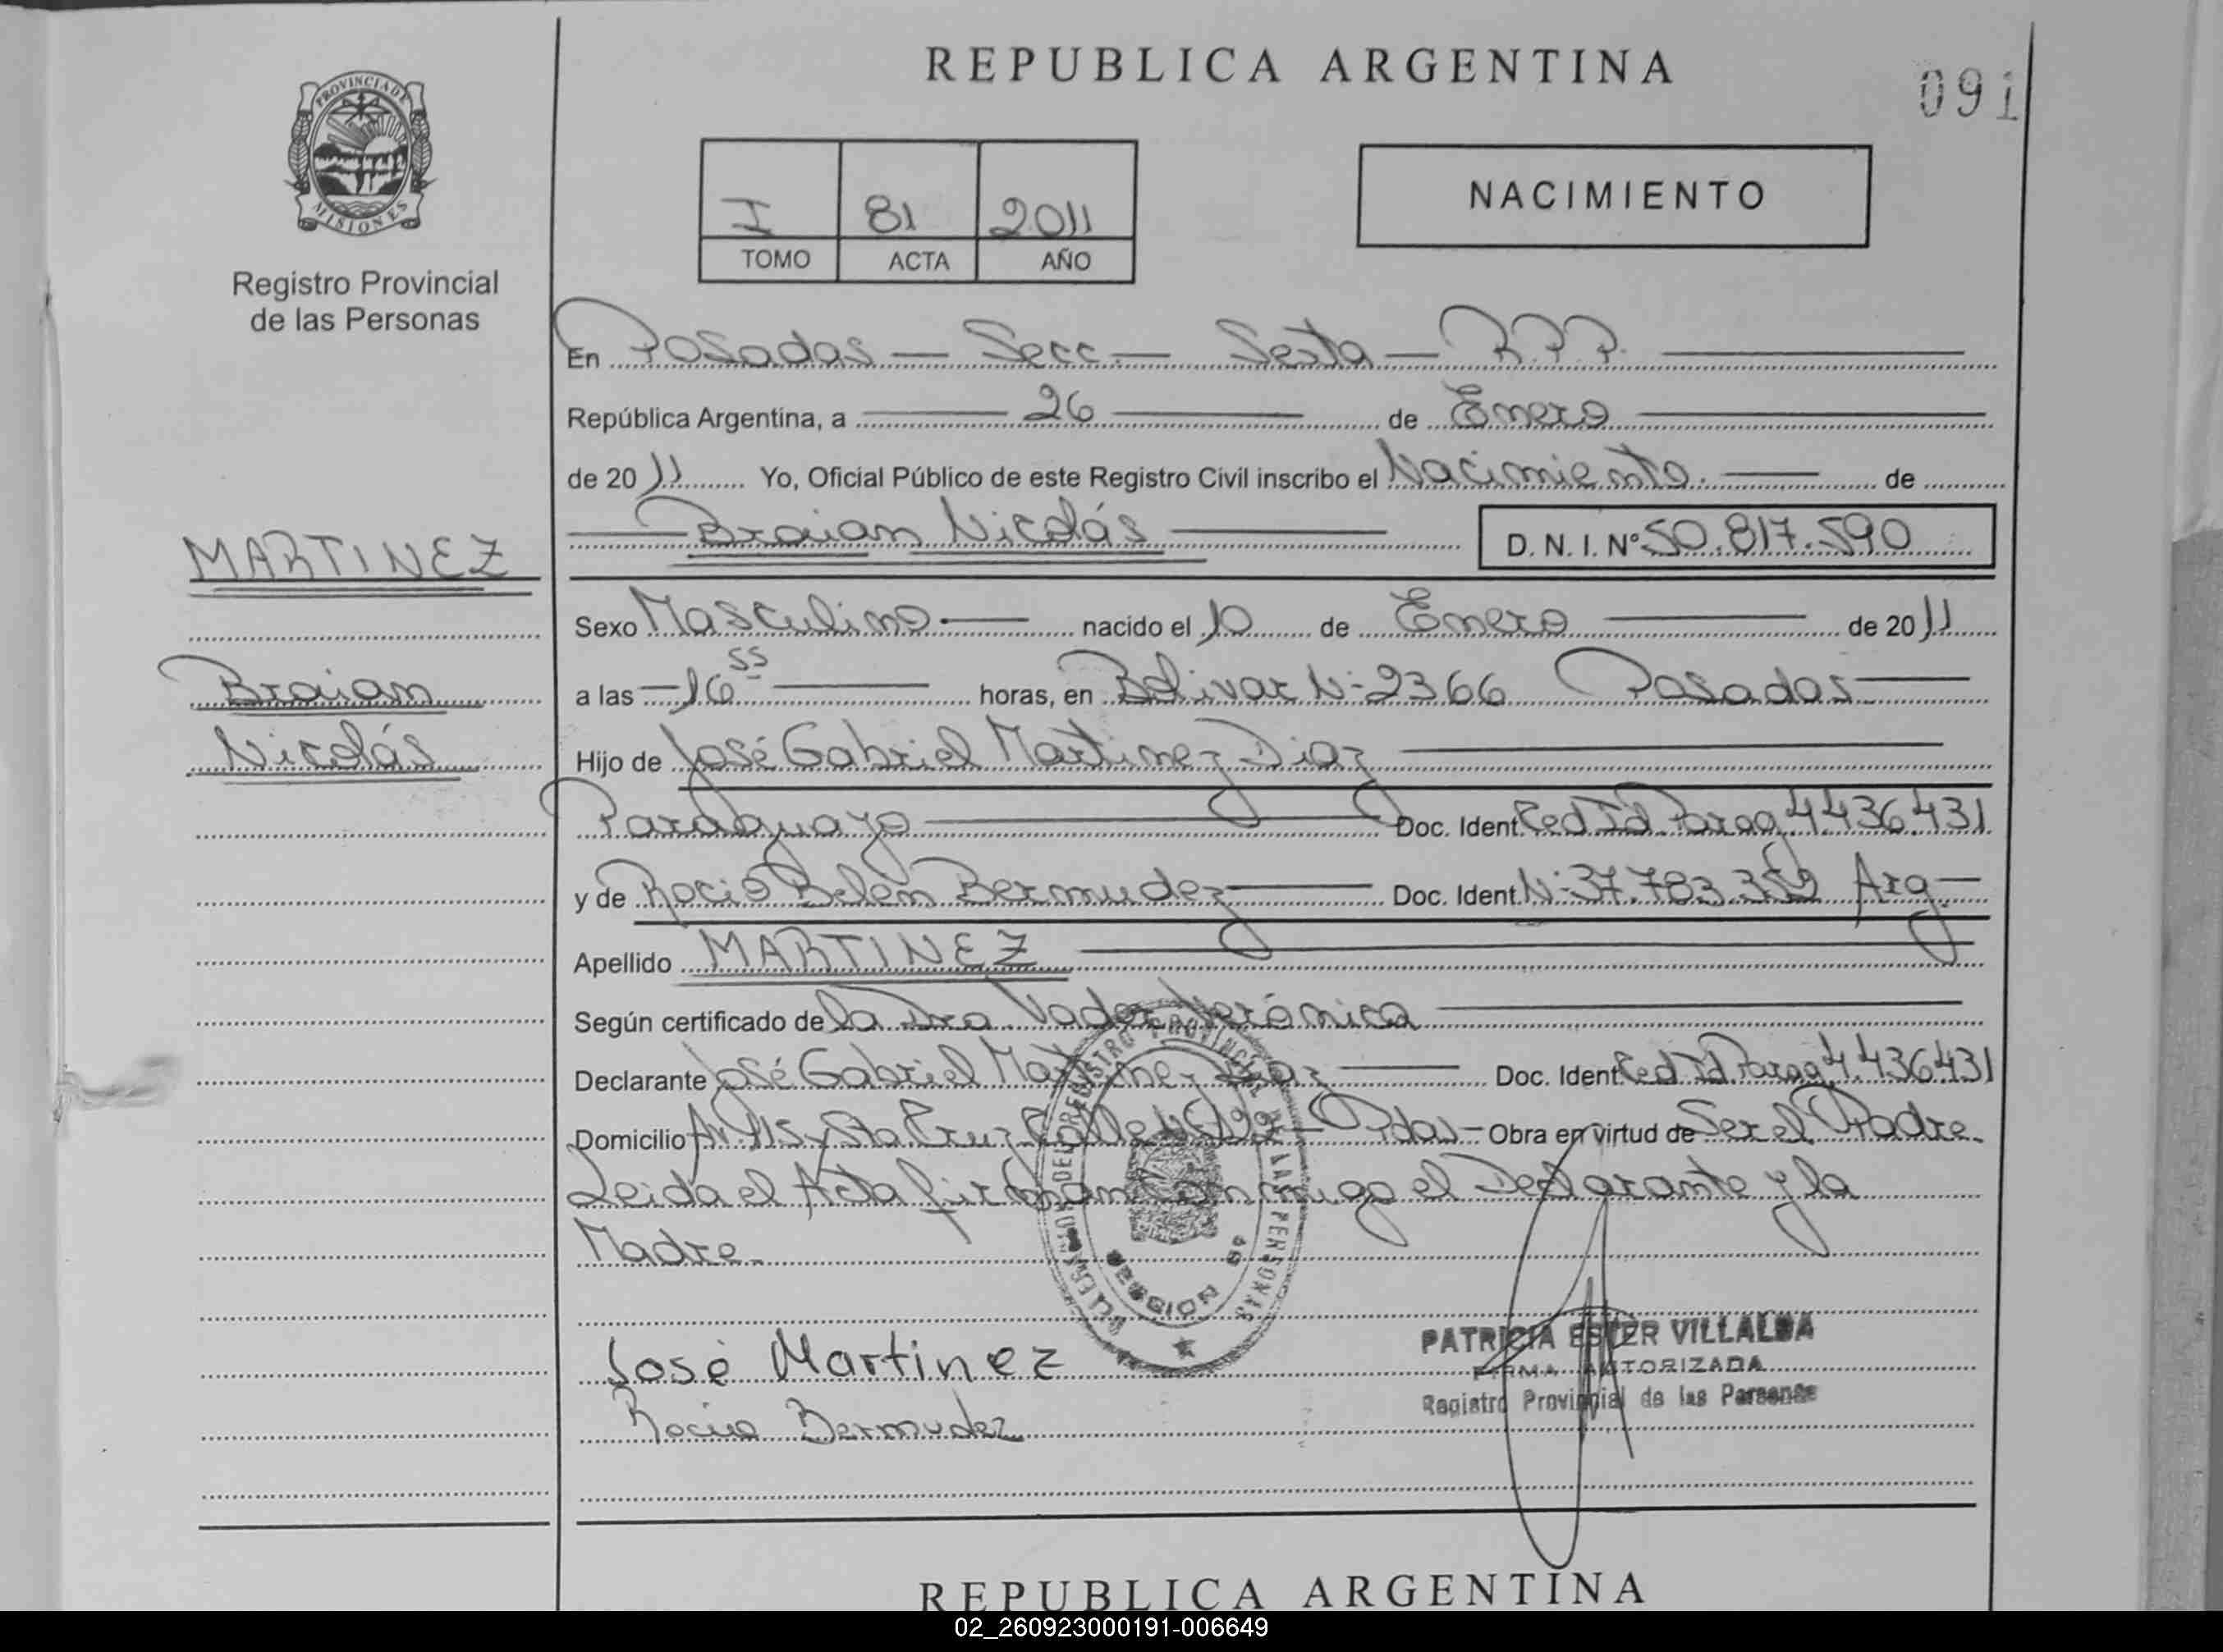 REPUBLICA ARGENTINA
091
PROVINCIA DE
MISIONES
Registro Provincial
de las Personas
I 81 2011
TOMO ACTA AÑO
NACIMIENTO
En Posadas — Secc. — Sexta — R.P.P.
República Argentina, a 26 de Enero
de 2011 Yo, Oficial Público de este Registro Civil inscribo el Nacimiento. de
Braian Nicolás D.N.I. Nº 50.817.590
MARTINEZ
Braian
Nicolás
Sexo Masculino nacido el 10 de Enero de 2011
a las 16 55 horas, en Bolivar N: 2366 Posadas
Hijo de José Gabriel Martinez Diaz
Paraguayo Doc. Ident. Ced Id Parag. 4.436.431
y de Rocio Belén Bermudez Doc. Ident. N: 37.783.352 Arg
Apellido MARTINEZ
Según certificado de la Dra Verónica
Declarante José Gabriel Martinez Diaz Doc. Ident Ced Id Parag 4.436.431
Domicilio Av. y Sta Cruz Pdas — Obra en virtud de Ser el Padre.
Leida el Acta firman conmigo el Declarante y la
Madre.
José Martinez
Rocio Bermudez
PATRICIA ESTER VILLALBA
FIRMA AUTORIZADA
Registro Provincial de las Personas
REPUBLICA ARGENTINA
02_260923000191-006649